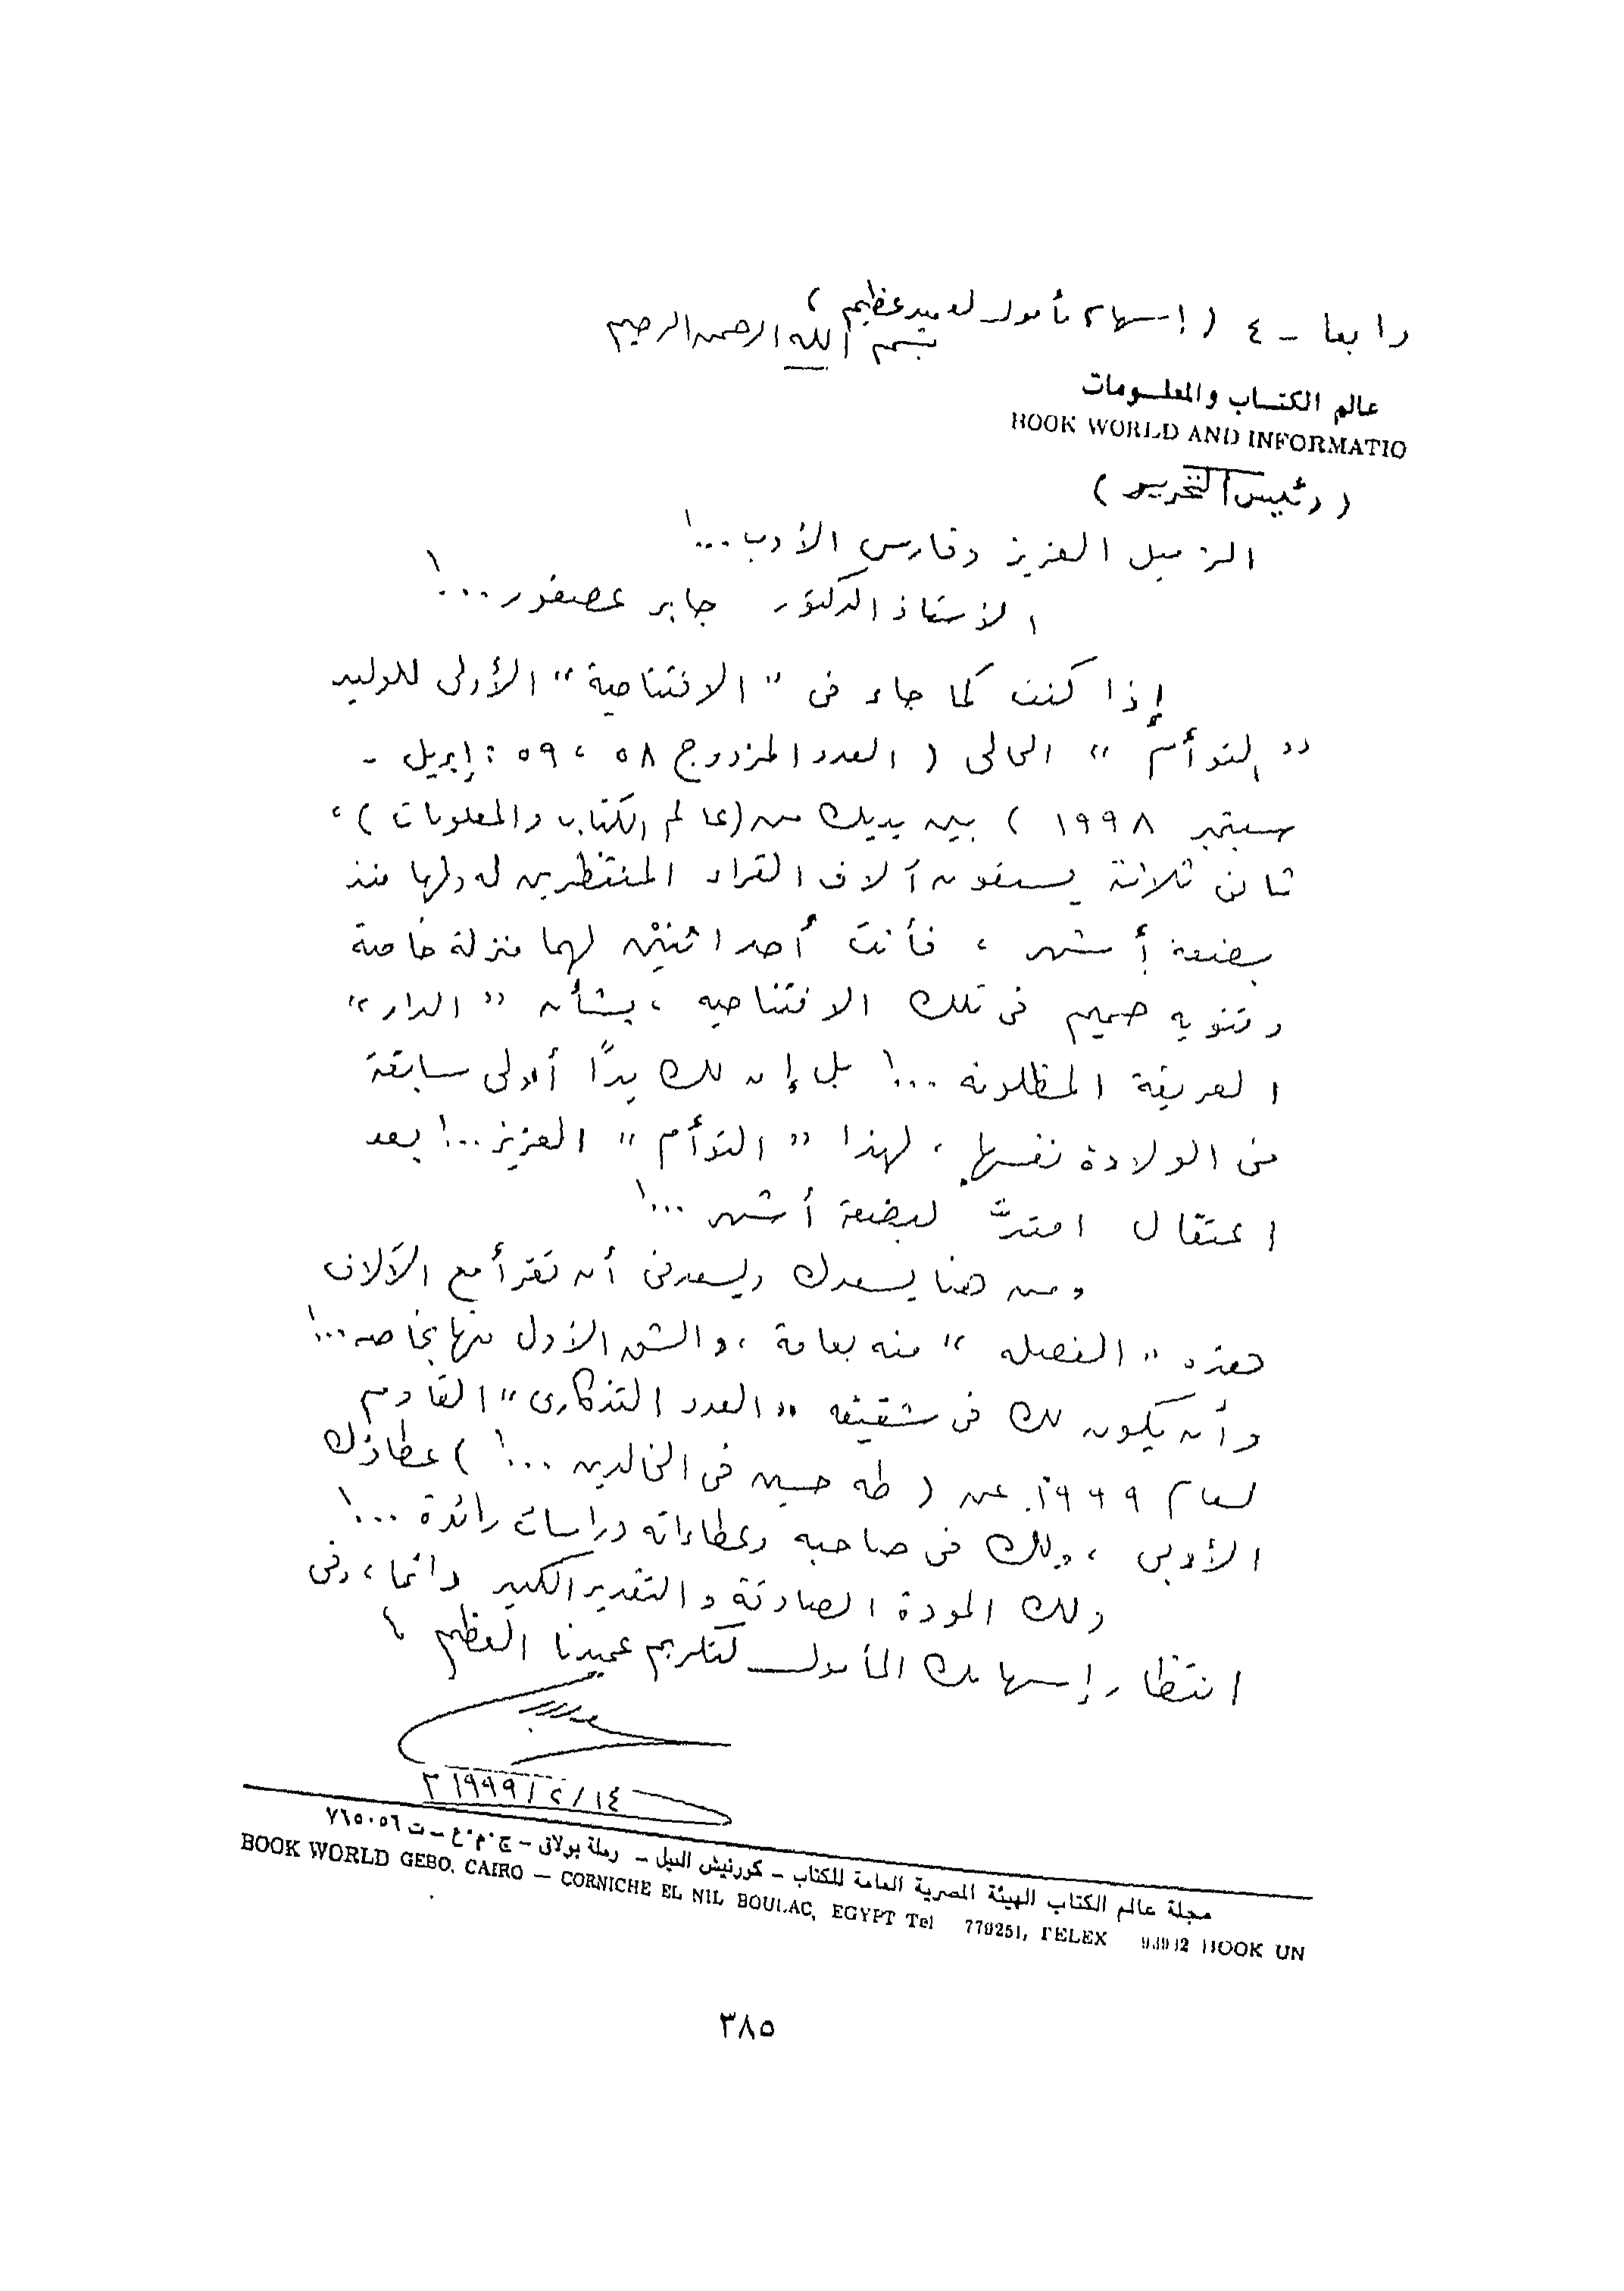 رابعا - ٤ (إسهام مأمول لعميد عظيم)
بسم الله الرحمن الرحيم
عالم الكتـاب والمعلـومات
BOOK WORLD AND INFORMATIO
(رئيس التحرير)
الزميل العزيز وفارس الأدب...!
الأستاذ الدكتور جابر عصفور...!
إذا كنت كما جاء فى "الافتتاحية" الأولى للوليد
"التوأم" الحالى (العدد المزدوج ٥٨ ، ٥٩ : إبريل -
سبتمبر ١٩٩٨) بين يديك من (عالم الكتاب والمعلومات)،
ثانى ثلاثة يسبقون آلاف القراء المنتظرين له ولها منذ
بضعة أشهر ، فأنت أحد اثنيْن لهما منزلة خاصة
وتنويه صميم فى تلك الافتتاحيه ، بشأن "الدار"
العريقة المظلومه ...! بل إن لك يدًا أولى سابقة
فى الولادة نفسها ، لهذا "التوأم" العزيز..! بعد
اعتقال امتدَّ لبضعة أشهر ...!
ومن هنا يسعدك ويسعدنى أن تقرأ مع الآلاف
هذه "الفصله" منه بعامة ، والشق الأول منها بخاصه...!
وأن يكون لك فى شقيقه "العدد التذكارى" القادم
لعام ١٩٩٩ عن (طه حسين فى الخالدين ...!) عطاؤك
الأدبى ، ولك فى صاحبه وعطاءاته دراسات رائدة ...!
ولك المودة الصادقة والتقدير الكبير دائما ، وفى
انتظار إسهامك المأمول لتكريم عميدنا العظيم ،
١٤/٢/١٩٩٩ م
مجلة عالم الكتاب الهيئة المصرية العامة للكتاب - كورنيش النيل - رملة بولاق - ج.م.ع - ت ٧٦٥٠٥٦
BOOK WORLD GEBO, CAIRO — CORNICHE EL NIL BOULAC, EGYPT Tel 779251, TELEX 93932 BOOK UN
٣٨٥